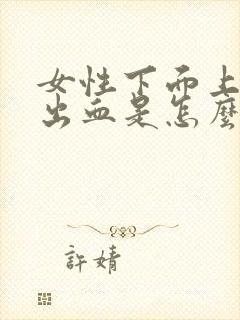 女性下面上
出血是怎麼
許婧